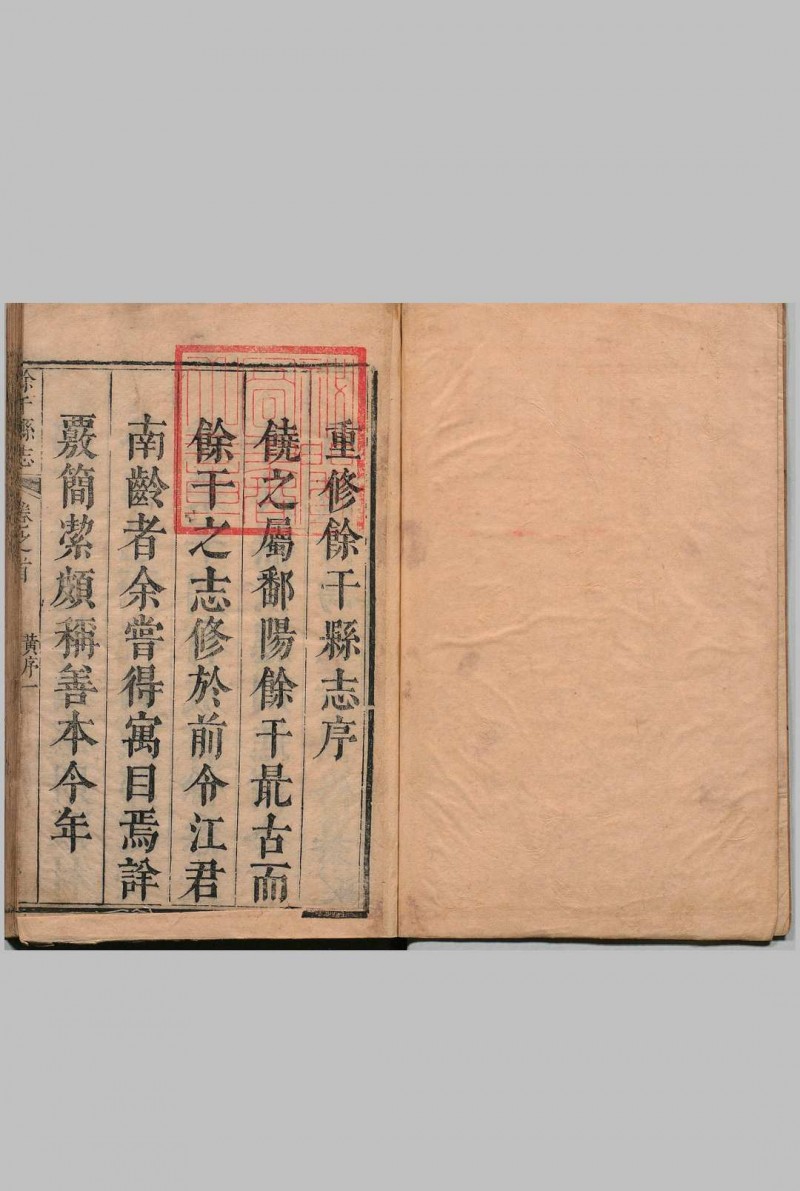 重修餘干縣志序
饒之屬鄱陽餘干最古而
餘干之志修於前令江君
南齡者余嘗得寓目焉詮
覈簡潔頗稱善本今年
餘干縣志 卷之首 黃序 一